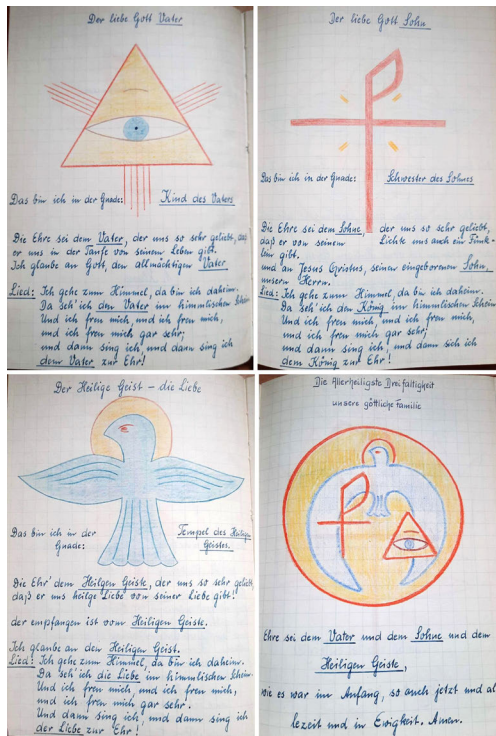 Der liebe Gott Vater
Das bin ich in der Gnade: Kind des Vaters
Die Ehre sei dem Vater, der uns so sehr geliebt, daß
er uns in der Taufe von seinem Leben gibt.
Ich glaube an Gott, den allmächtigen Vater.
Lied: Ich gehe zum Himmel, da bin ich daheim.
Da seh' ich den Vater im himmlischen Schein
Und ich freu mich, und ich freu mich,
und ich freu mich gar sehr,
und dann sing ich, und dann sing ich
dem Vater zur Ehr!
Der liebe Gott Sohn
Das bin ich in der Gnade: Schwester des Sohnes
Die Ehre sei dem Sohne, der uns so sehr geliebt,
daß er von seinem Lichte uns auch ein Fünk-
lein gibt.
und an Jesus Christus, seinen eingeborenen Sohn,
unsern Herrn.
Lied: Ich gehe zum Himmel, da bin ich daheim.
Da seh' ich den König im himmlischen Schein
Und ich freu mich, und ich freu mich,
und ich freu mich gar sehr,
und dann sing ich, und dann sich ich
dem König zur Ehr!
Der Heilige Geist – die Liebe
Das bin ich in der Tempel des Heiligen
Gnade: Geistes.
Die Ehr' dem Heilgen Geiste, der uns so sehr geliebt,
daß er uns heilge Liebe von seiner Liebe gibt!
der empfangen ist vom Heiligen Geiste.
Ich glaube an den Heiligen Geist.
Lied: Ich gehe zum Himmel, da bin ich daheim.
Da seh' ich die Liebe im himmlischen Schein.
Und ich freu mich, und ich freu mich,
und ich freu mich gar sehr.
Und dann sing ich, und dann sing ich
der Liebe zur Ehr!
Die Allerheiligste Dreifaltigkeit
unsere göttliche Familie
Ehre sei dem Vater und dem Sohne und dem
Heiligen Geiste,
wie es war im Anfang, so auch jetzt und al
lezeit und in Ewigkeit. Amen.